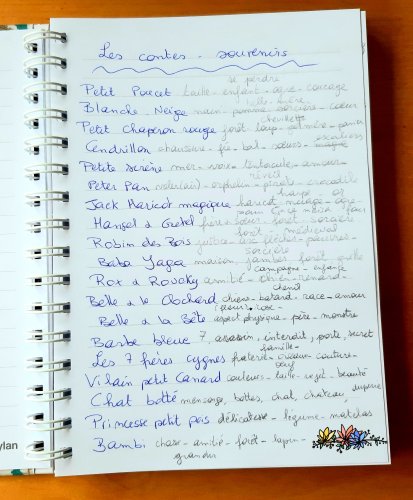 Les contes - souvenirs
se perdre
Petit Poucet taille - enfant - ogre - courage
belle-mère
Blanche-Neige nain - pomme - sorcière - cœur
chevillette
Petit Chaperon rouge forêt - loup - panier
escaliers
Cendrillon chaussure - fée - bal - sœurs
Petite sirène mer - voix - tentacule - amour
Peter Pan orphelin - pirate - crocodile
harpe or
Jack Haricot magique haricot - ogre
Hansel & Gretel frère - sœur - forêt - sorcière
forêt - médiéval
Robin des Bois arc flèches - pauvres -
sorcière
Baba Yaga maison - jambes forêt
campagne - enfance
Rox & Rouky amitié - chien - renard -
chenil
Belle & le Clochard chiens - batard - race - amour
fleur: rose -
Belle & la Bête aspect physique - père - monstre
Barbe bleue 7 assassin - interdit, porte, secret
famille -
Les 7 frères cygnes fraterie - couture -
Vilain petit Canard couleurs - taille - rejet - beauté
Chat botté mensonge, bottes, chat, chateau,
Princesse petit pois délicatesse - légume - matelas
Bambi chasse - amitié - forêt - lapin -
grandir
ylan